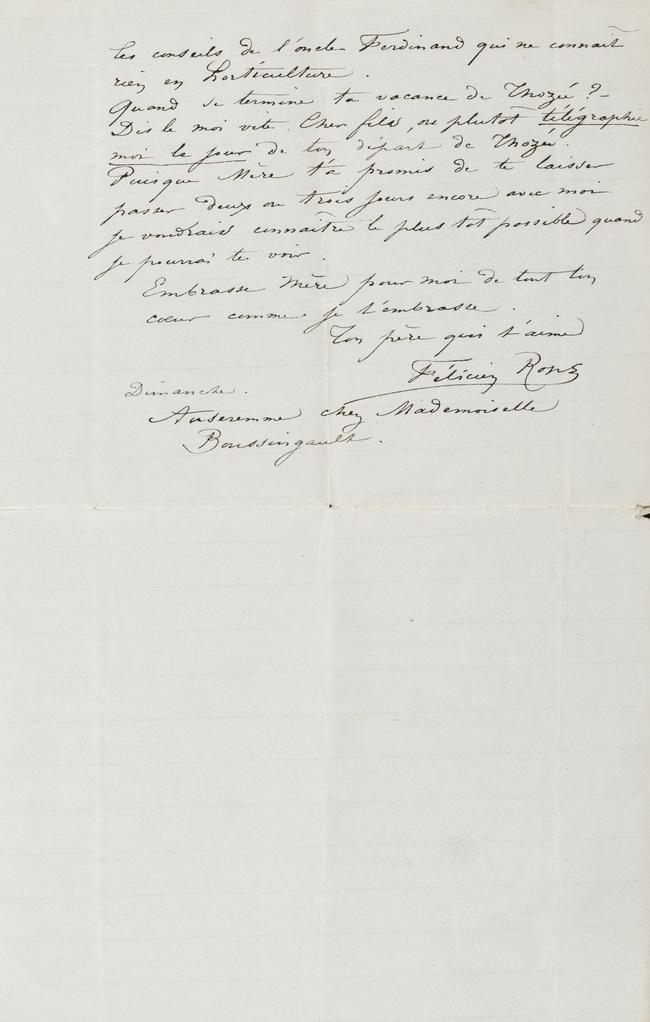 les conseils de l'oncle Ferdinand qui ne connait
rien en horticulture.
Quand se termine ta vacance de Thozée ?-
Dis le moi vite. Cher fils, ou plutot télégraphie
moi le jour de ton depart de Thozée.
Puisque Mère t'a promis de te laisser
passer deux ou trois jours encore avec moi
je voudrais connaître le plus tôt possible quand
je pourrai te voir.
Embrasse Mère pour moi de tout ton
coeur comme je t'embrasse.
Ton père qui t'aime
Félicien Rops
Dimanche.
Anseremme chez Mademoiselle
Boussingault.